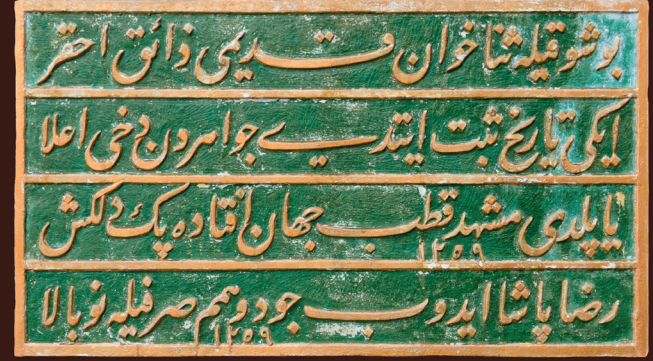 بو شوقیله ثناخوان قدیمی ذائق احقر
ایکی تاریخ ثبت ایتدی جواهردن دخی اعلا
یاپلدی مشهد قطب جهان افتاده پك دلکش ١٢٥٩
رضا پاشا ایدوب جود و همم صرفیله نو بالا ١٢٥٩